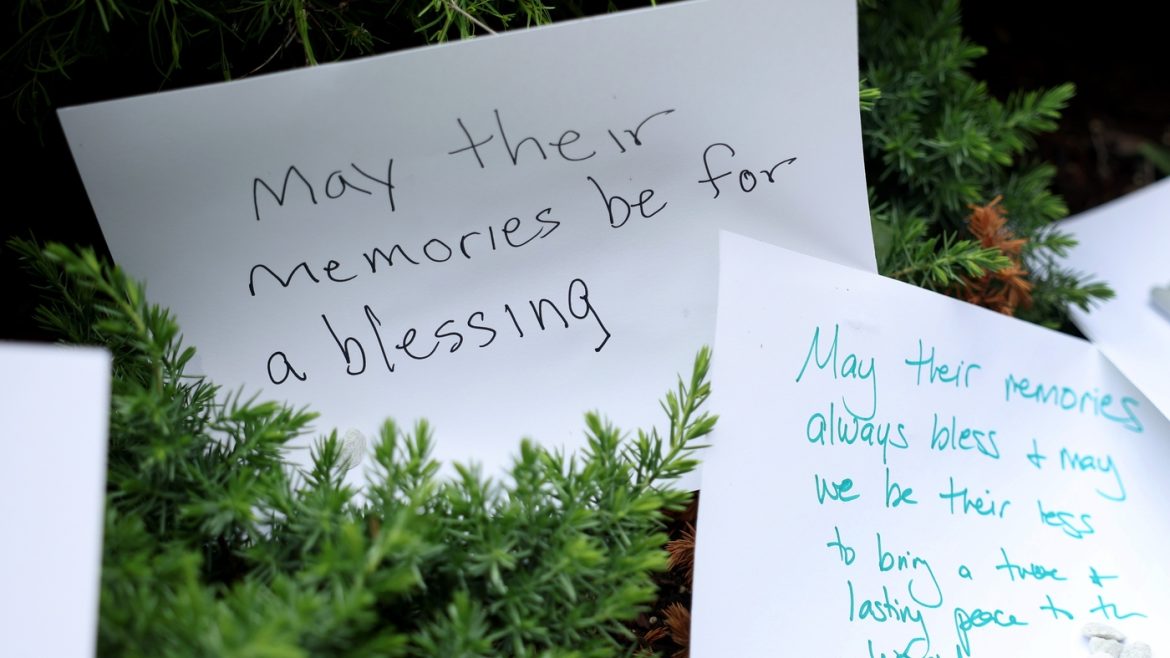 May their
memories be for
a blessing
May their memories
always bless & may
we be their
to bring a &
lasting peace to